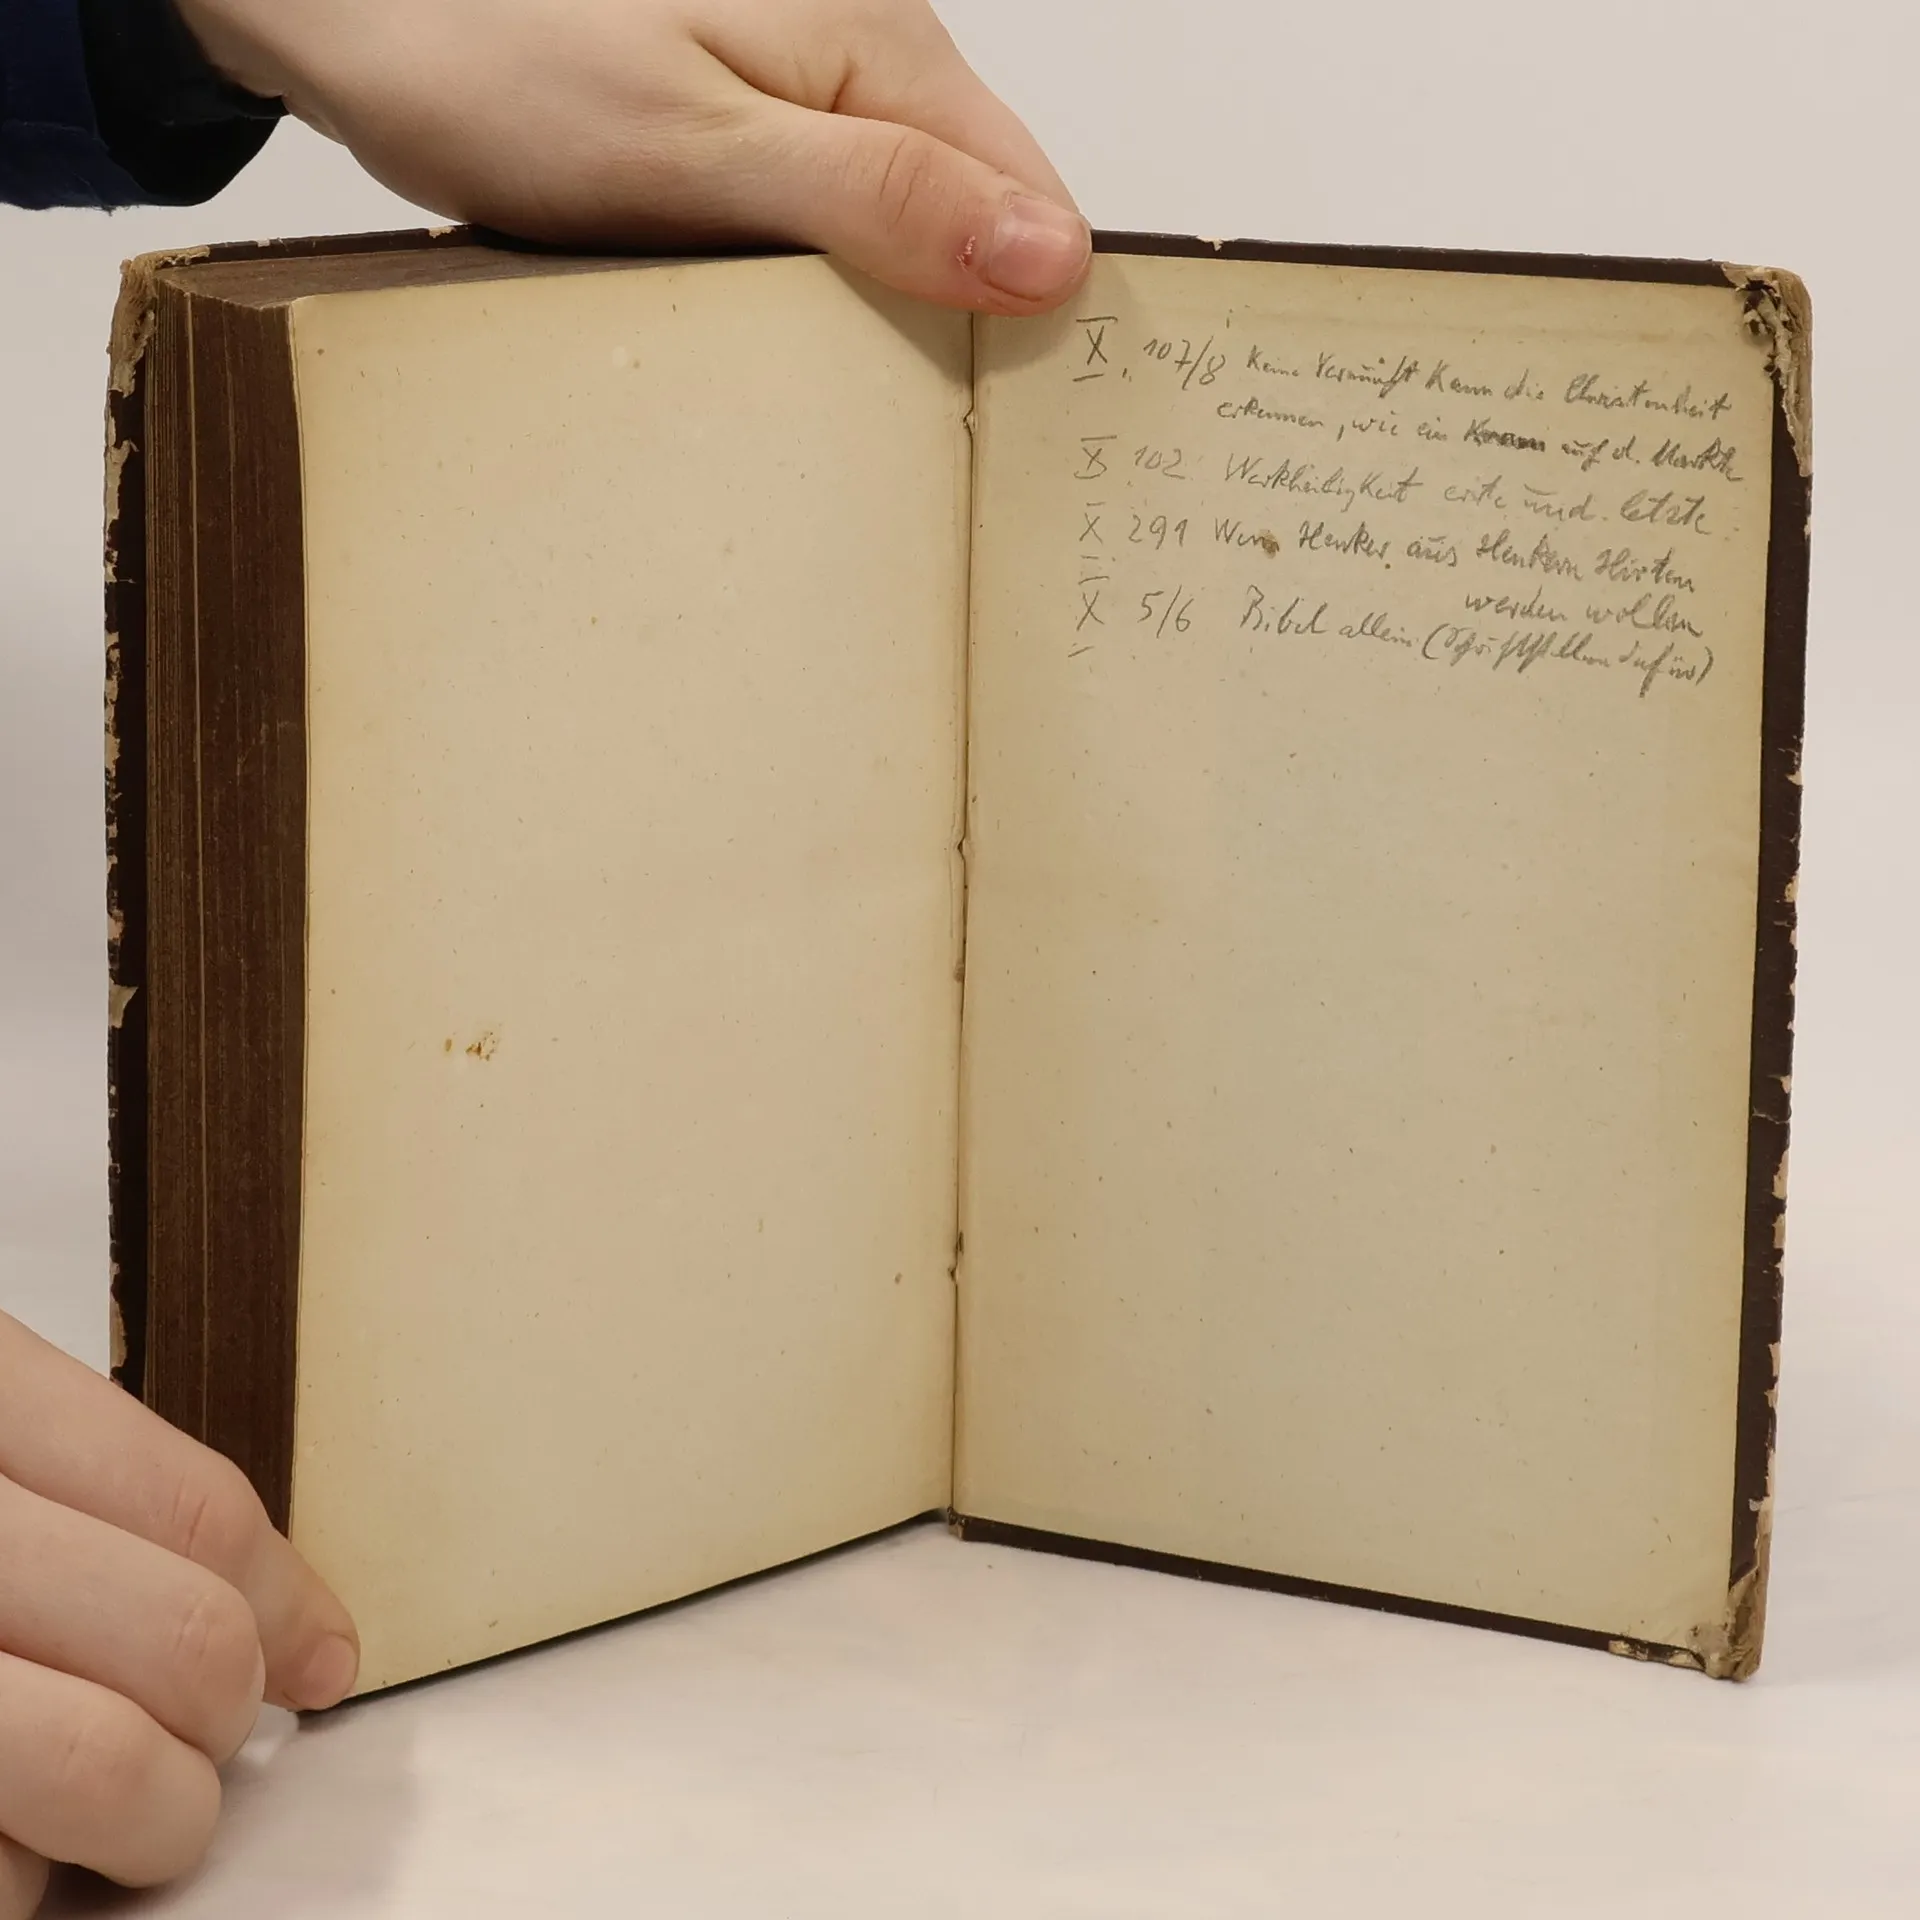 X, 107/8 Keine Vernunft kann die Christenheit
erkennen, wie ein Kram auf d. Markte
X 102 Werkheiligkeit erste und letzte
X 291 Wenn Henker aus Henkern Hirten
werden wollen
X 5/6 Bibel allein (Schriftstellen dafür)